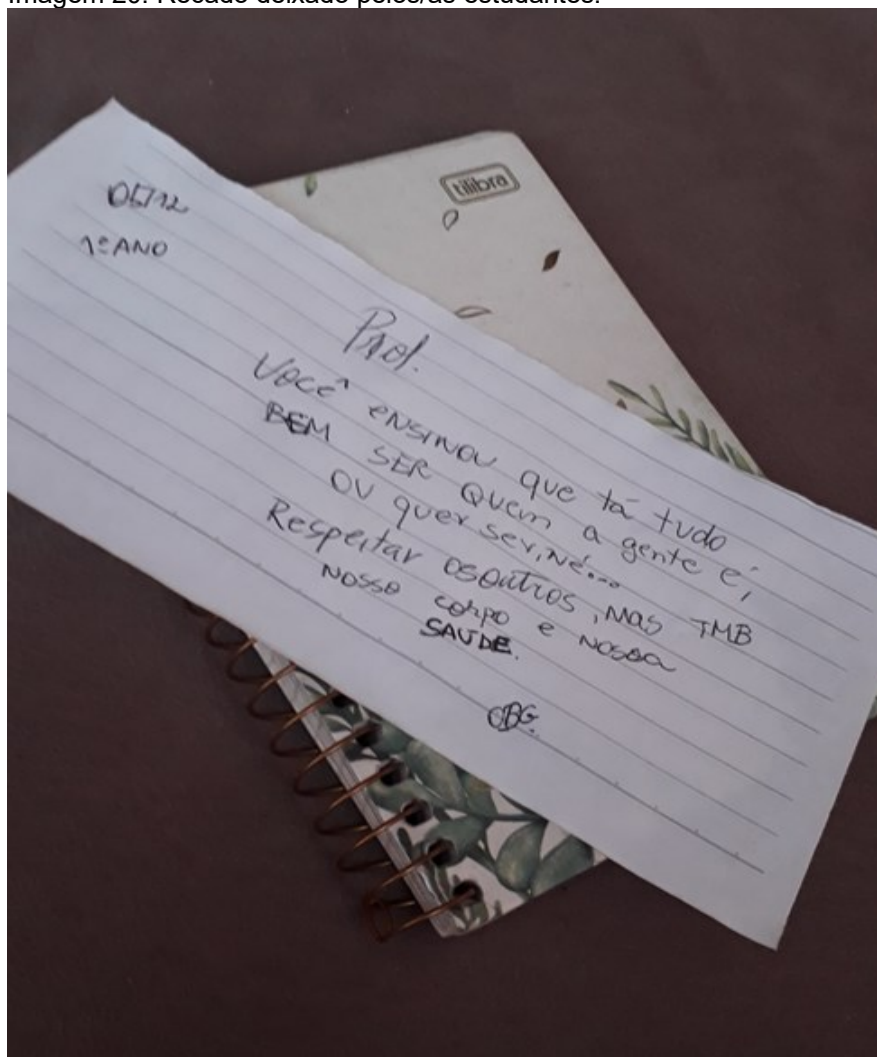 Imagem 29: Recado deixado pelos/as estudantes.
tilibra
05/12
1º ANO
Prof.
Você ensinou que tá tudo
BEM SER Quem a gente é,
OU quer ser, né...
Respeitar os outros, mas TMB
NOSSO corpo e NOSSA
SAÚDE.
OBG.